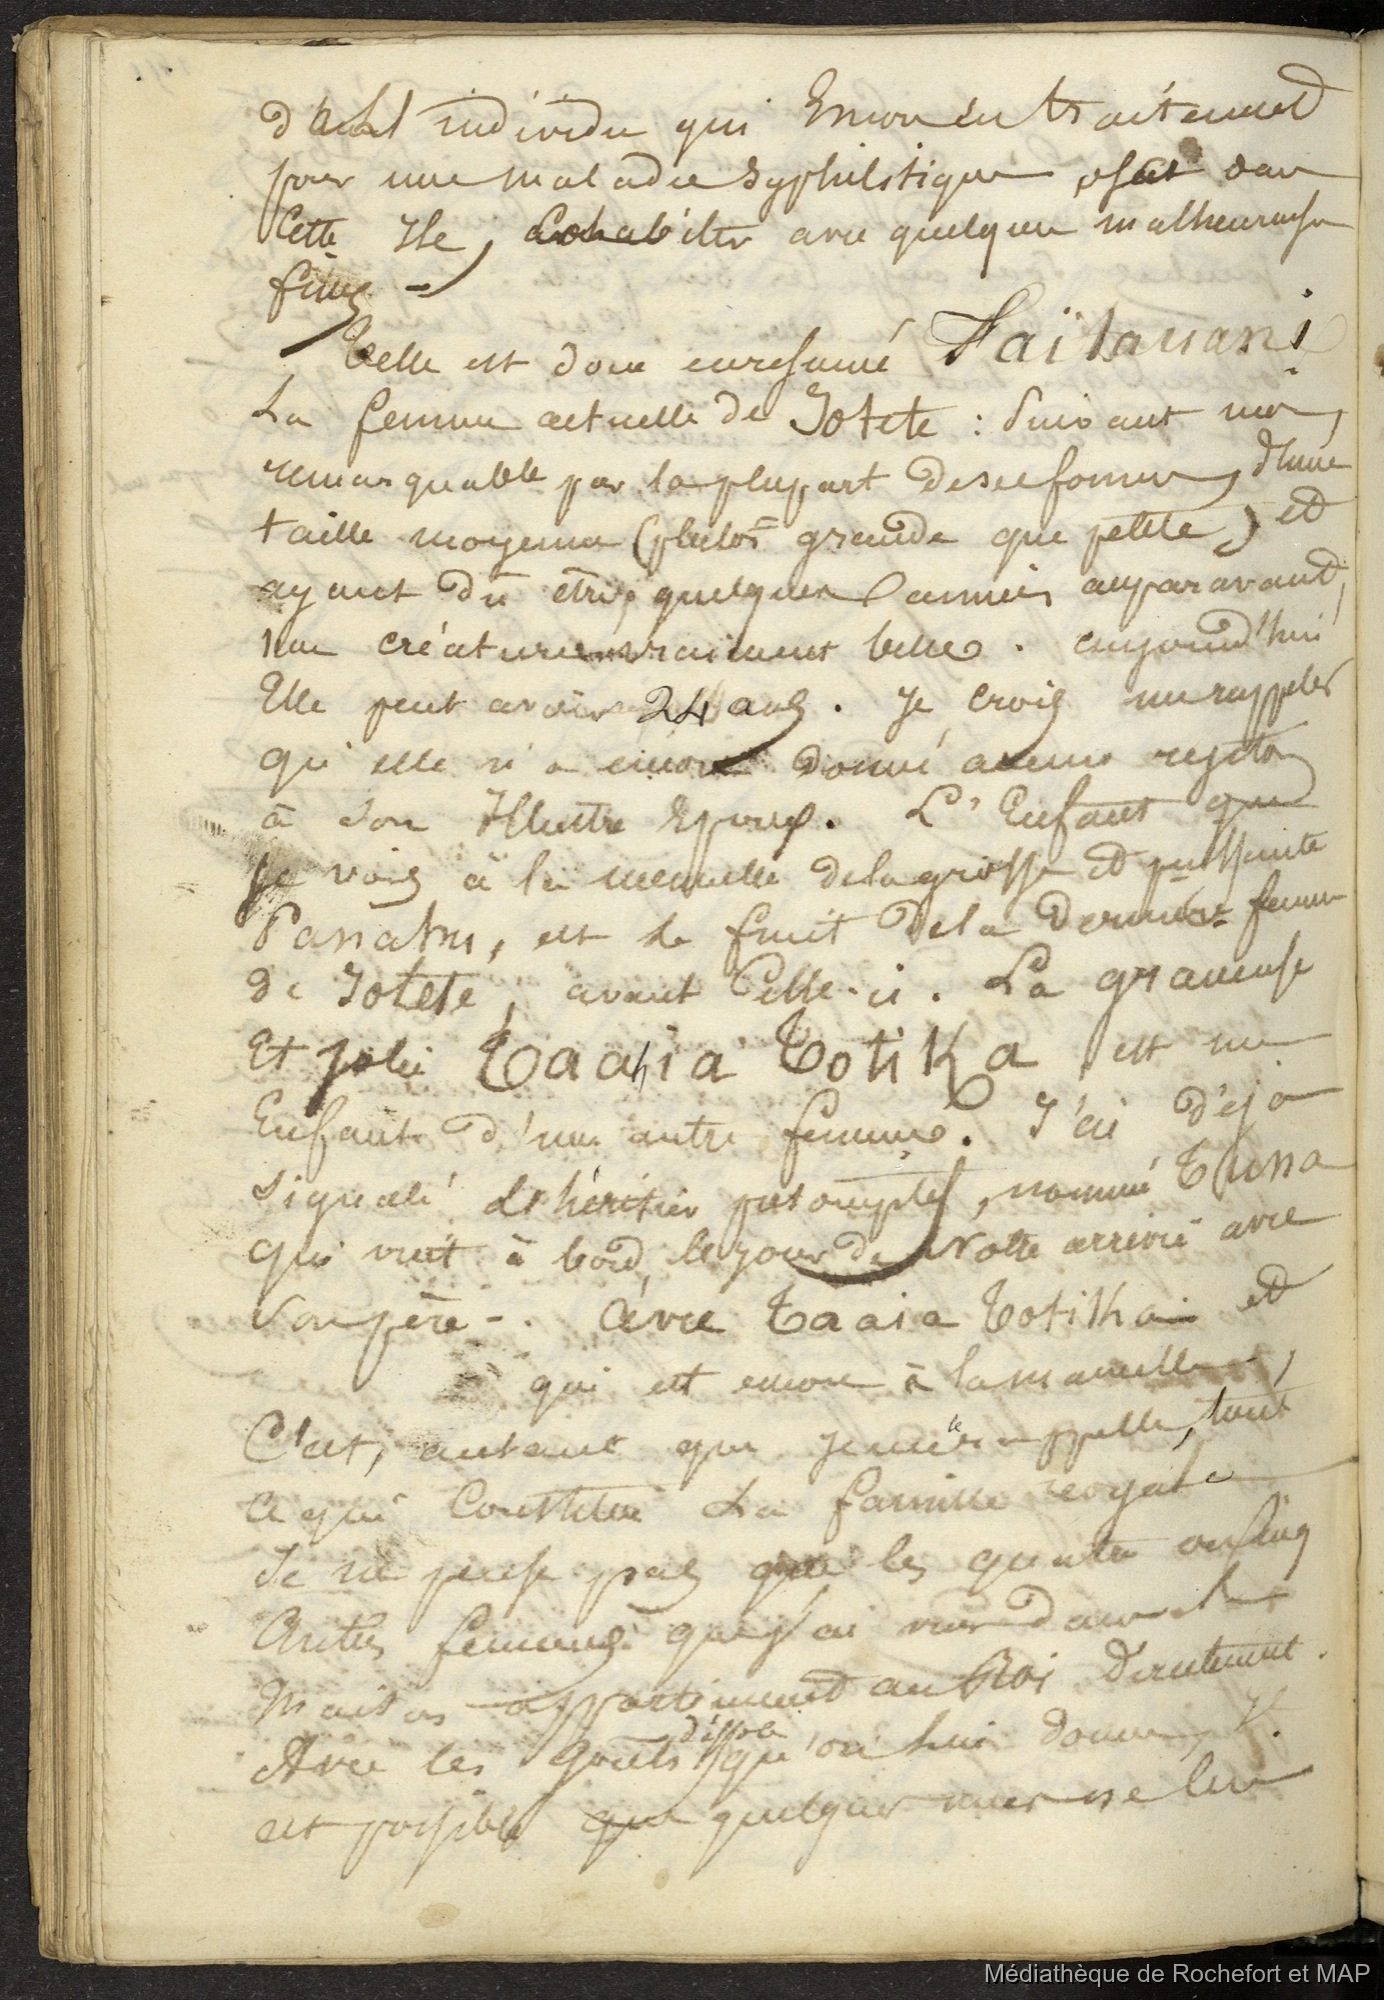 d'un tel individu qui Encore en traitement
pour une maladie Syphilitique osait dans
Cette Ile, Cohabiter avec quelque malheureuse
fille -
Telle est donc en resumé Faitauani
La femme actuelle de Jotete : Suivant moi,
remarquable par la plupart de ses formes, d'une
taille moyenne (plutôt grande que petite) et
ayant du être, quelques années auparavant,
une créature vraiment belle. aujourd'hui
Elle peut avoir 24 ans. Je Crois me rappeler
qu'elle n'a encore donné aucun rejeton
à Son Illustre Epoux. L'Enfant que
je vois à la mamelle de la grosse et puissante
Panahu, est le fruit de la dernière femme
de Jotete, avant Celle-ci. La gracieuse
Et jolie Taahia Totika est une
Enfant d'une autre femme. J'ai déjà
signalé L'héritier présomptif, nommé
qui vint à bord, le jour de Notre arrivée avec
Son père -. Avec Taaia Totika et
qui est encore à la mamelle,
C'est, autant que je me le rappelle, tout
ce qui Constitue La famille royale
Je ne pense pas que les quatre ou cinq
Autres femmes que j'ai vues dans la
Maison appartiennent au Roi directement.
Avec les goûts dissolus qu'on lui donne, Il
est possible que quelques unes ne